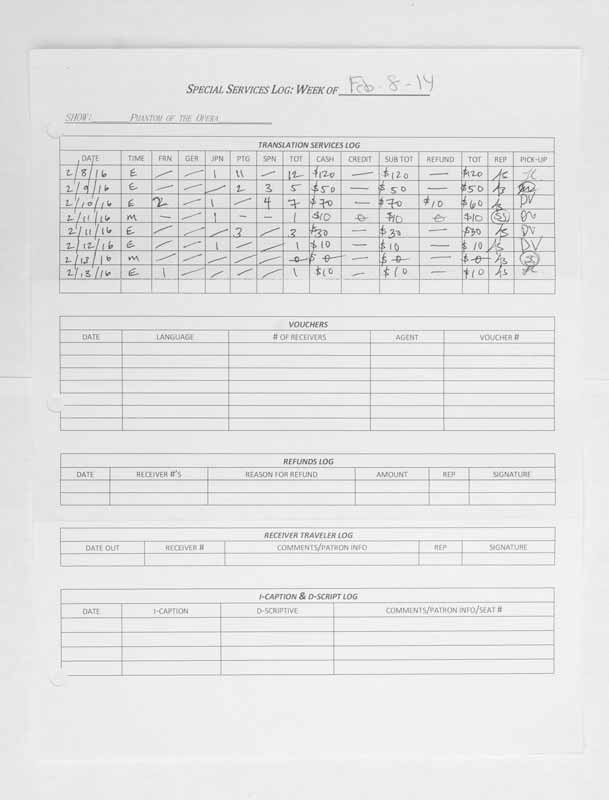 SPECIAL SERVICES LOG: WEEK OF Feb - 8 - 14
SHOW: PHANTOM OF THE OPERA
TRANSLATION SERVICES LOG
DATE TIME FRN GER JPN PTG SPN TOT CASH CREDIT SUB TOT REFUND TOT REP PICK-UP
2/8/16 E — — 1 11 — 12 $120 — $120 — $120
2/9/16 E — — — 2 3 5 $50 — $50 — $50
2/10/16 E 2 — 1 — 4 7 $70 — $70 $10 $60 DV
2/11/16 M — — 1 — — 1 $10 0 $10 0 $10
2/11/16 E — — — 3 — 3 $30 — $30 — $30 DV
2/12/16 E — — 1 — — 1 $10 — $10 — $10 DV
2/13/16 M — — — — — 0 $0 — $0 — $0
2/13/16 E 1 — — — — 1 $10 — $10 — $10
VOUCHERS
DATE LANGUAGE # OF RECEIVERS AGENT VOUCHER #
REFUNDS LOG
DATE RECEIVER #'S REASON FOR REFUND AMOUNT REP SIGNATURE
RECEIVER TRAVELER LOG
DATE OUT RECEIVER # COMMENTS/PATRON INFO REP SIGNATURE
I-CAPTION & D-SCRIPT LOG
DATE I-CAPTION D-SCRIPTIVE COMMENTS/PATRON INFO/SEAT #